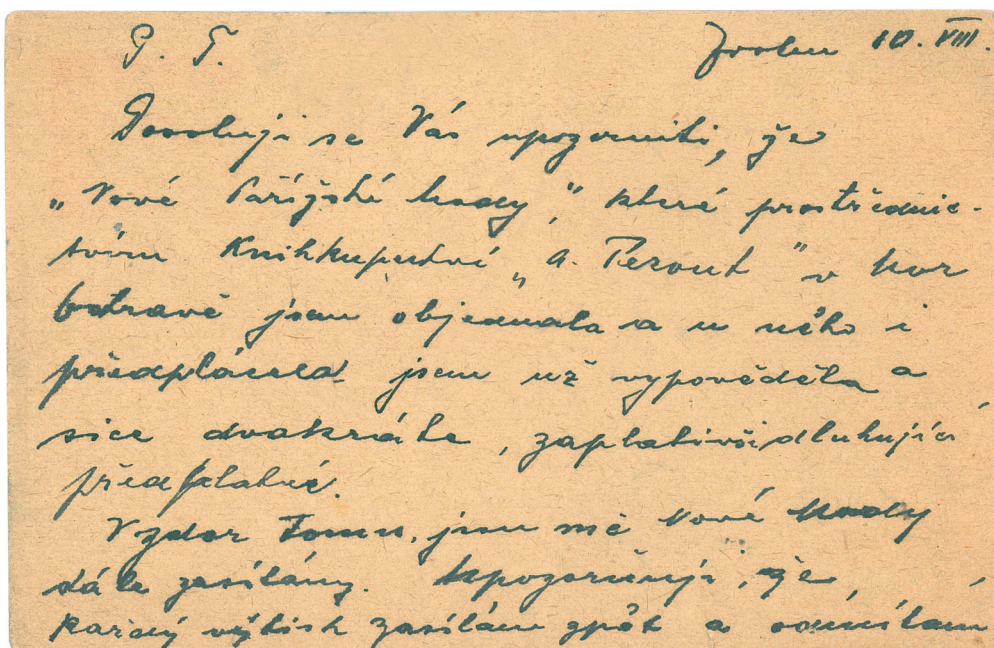 P. T. 10. VIII.
Dovoluji se Vás upozorniti, že
„Nové Pařížské mody," které prostřednic-
tvím Knihkupectví „A. Perout" v Mor
Ostravě jsem objednala a u něho i
předplácela jsem už vypověděla a
sice dvakráte, zaplativši dluhující
předplatné.
Vzdor tomu, jsou mě Nové Mody
dále zasílány. Upozorňuji, že
každý výtisk zasílám zpět a odmítám